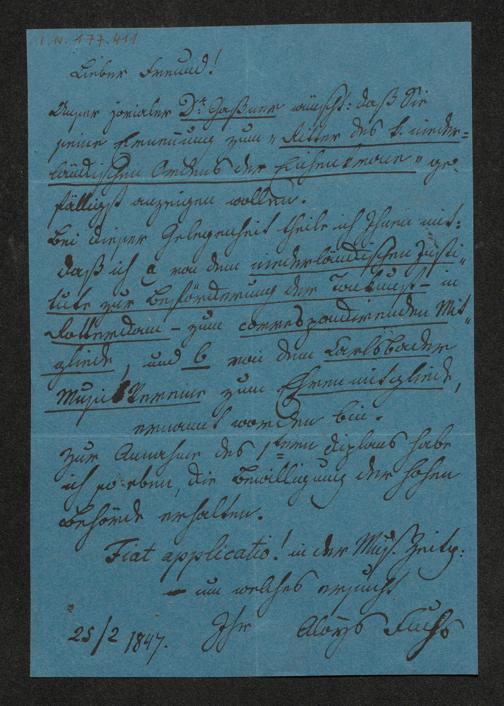 I. N. 177.411
Lieber Freund!
Unser jovialer Dr. Gaßner wünscht: daß Sie
seine Ernennung zum „Ritter des k. nieder-
ländischen Ordens der Eichenkrone" ge-
fälligst anzeigen wollen.
Bei dieser Gelegenheit theile ich Ihnen mit:
daß ich a von dem niederländischen Insti-
tute zur Beförderung der Tonkunst – in
Rotterdam – zum correspondirenden Mit-
gliede, und b von dem Carlsbader
Musik Vereine zum Ehrenmitgliede,
ernannt worden bin.
Zur Annahme des 1ten Diploms habe
ich so eben, die Bewilligung der hohen
Behörde erhalten.
Fiat applicatio! in der Mus. Zeitg:
– um welches ersucht
Ihr Aloys Fuchs
25/2 1847.